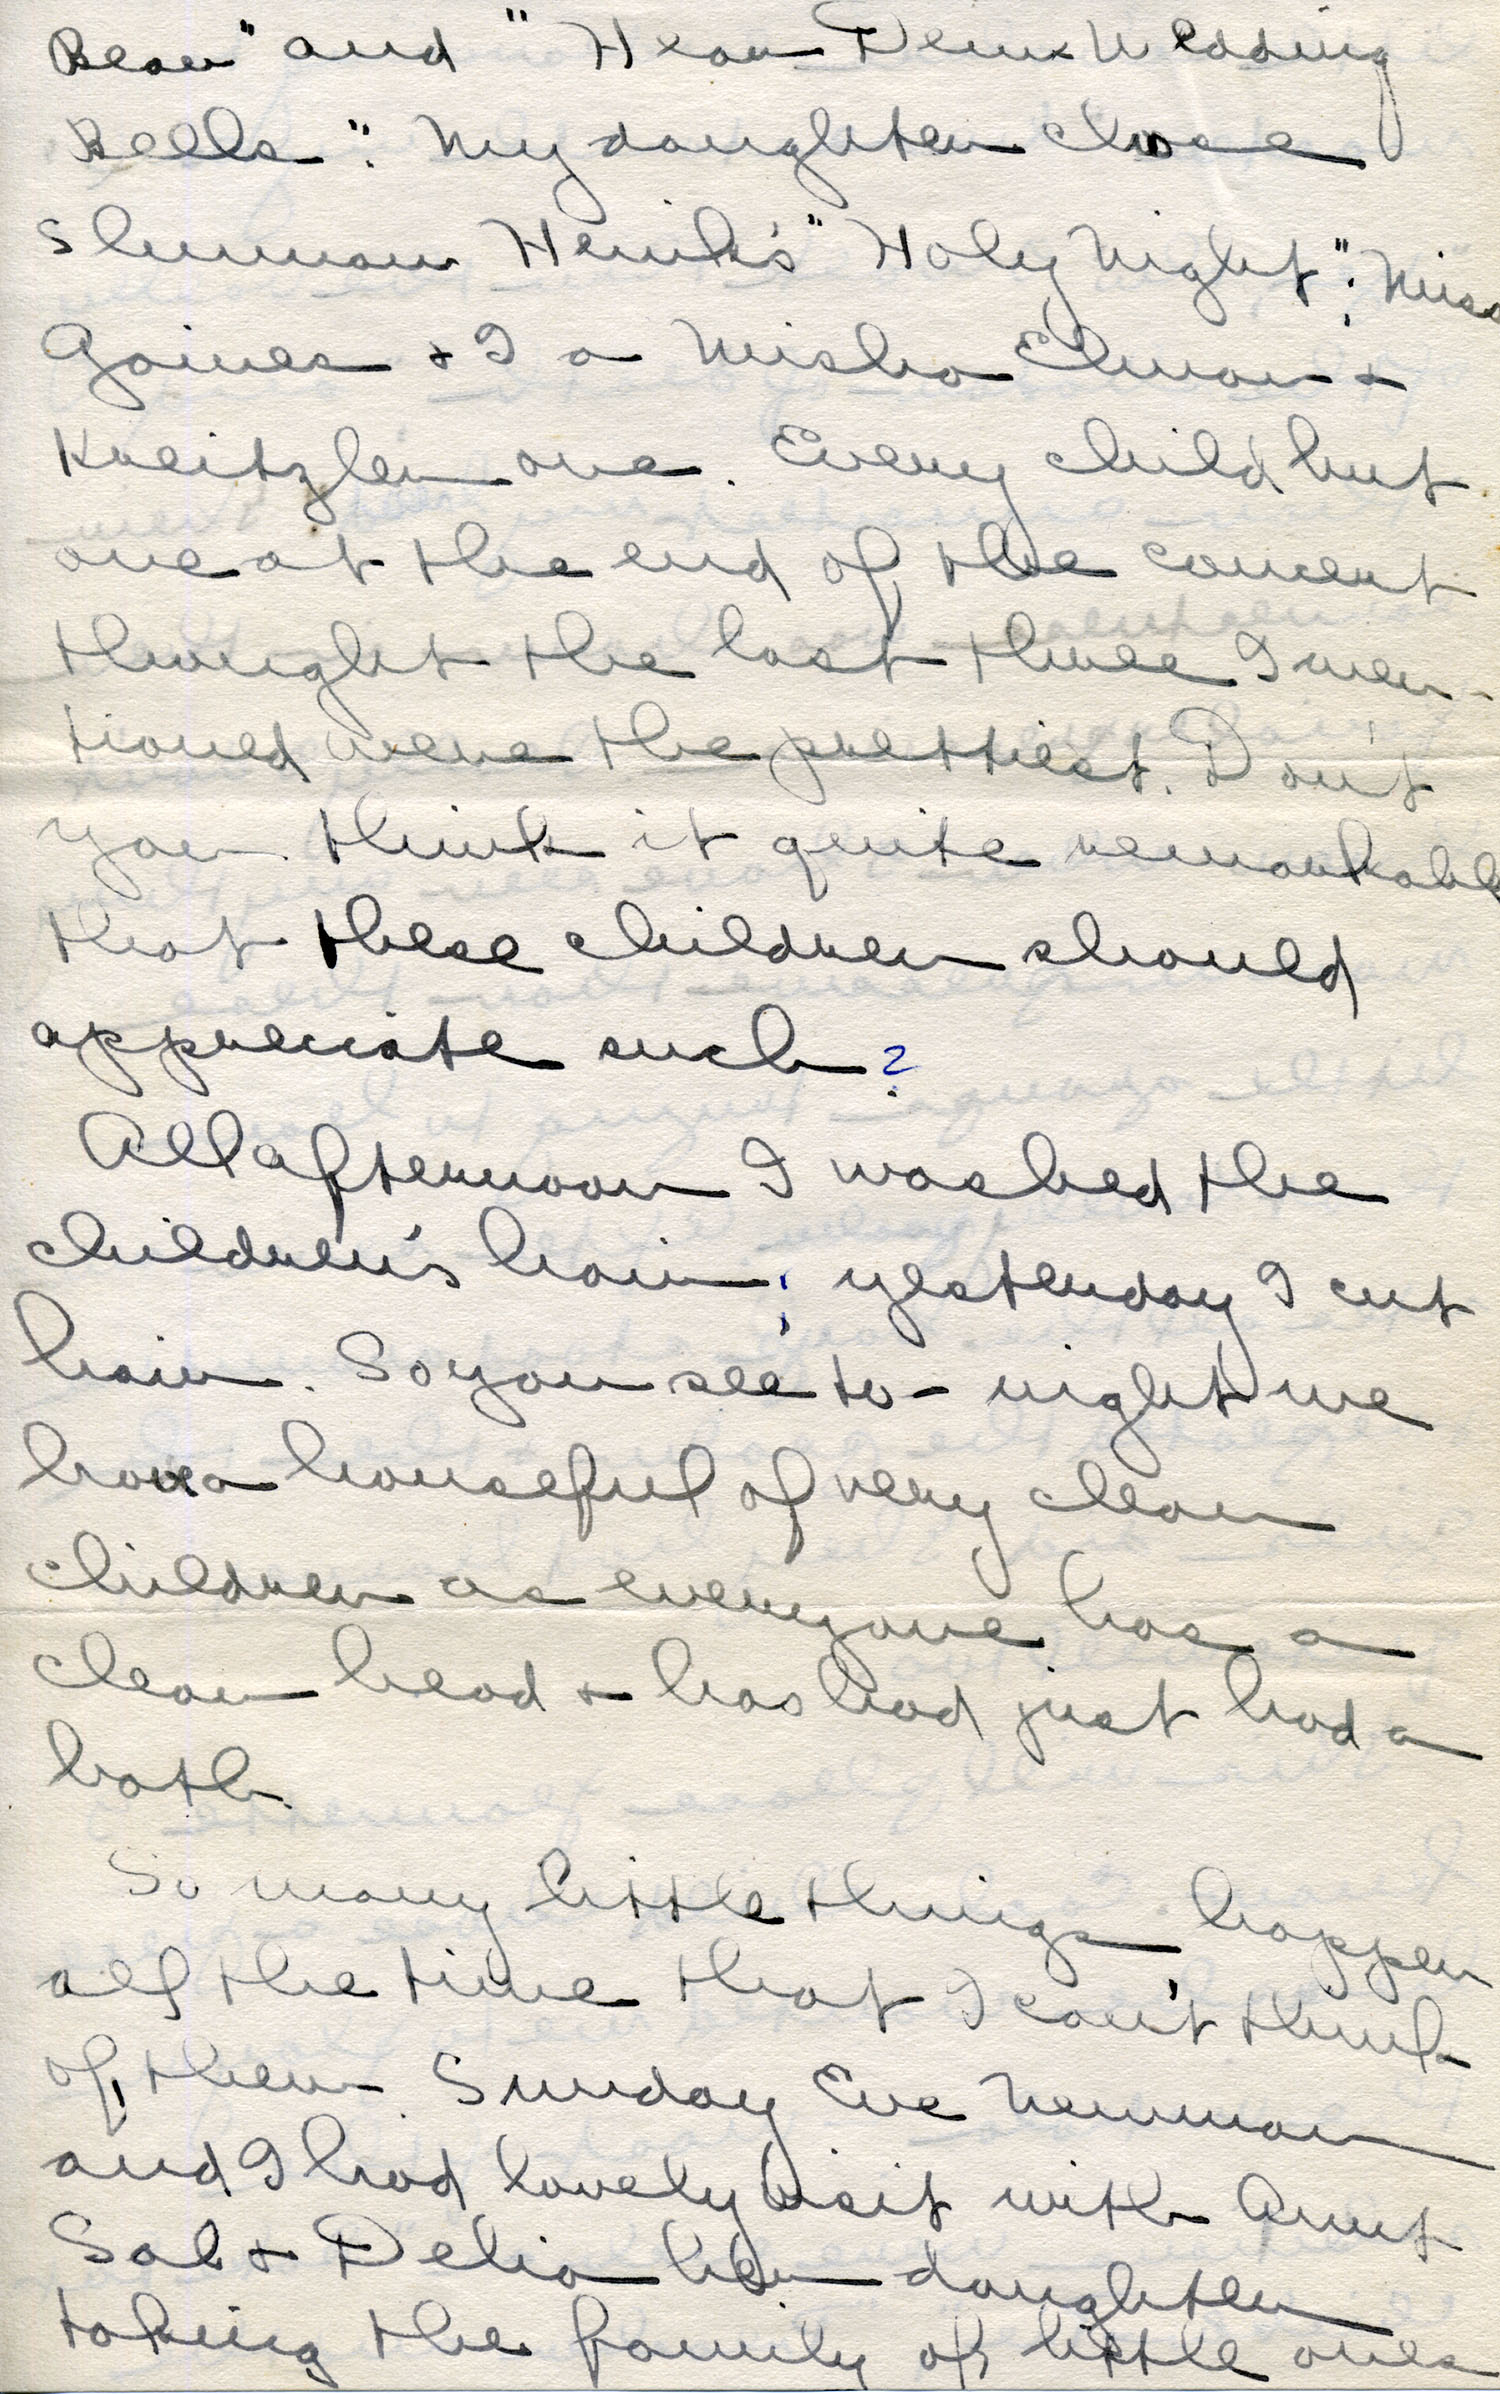 Bear" and "Hear Dem Wedding
Bells". My daughter chose
Shuman Heink's "Holy Night"; Miss
Gaines & I a Misha Elman &
Kreitzler one. Every child but
one at the end of the concert
thought the last three I men-
tioned were the prettiest. Don't
you think it quite remarkable
that these children should
appreciate such?
All afternoon I washed the
children's hair; yesterday I cut
hair. So you see to-night we
have a houseful of very clean
children as everyone has a
clean head & has had just had a
bath.
So many little things happen
all the time that I can't think
of them. Sunday Eve Newman
and I had lovely visit with Aunt
Sal & Delia her daughter
taking the family of little ones